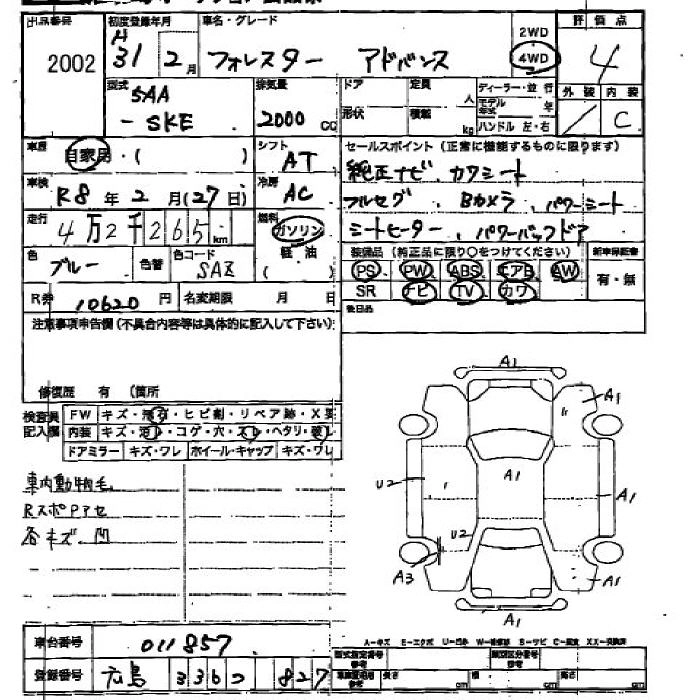 出品番号 初度登録年月 車名・グレード 評価点
2002 H 31 2月 フォレスター アドバンス 2WD 4WD 4
型式 排気量 ドア 定員 人 ディーラー・並行 外装 内装
5AA
-SKE 2000 CC 形状 積載 kg モデル年式 年 ハンドル 左・右 / C
車歴 自家用・( ) シフト AT セールスポイント(正常に機能するものに限ります)
純正ナビ、カワシート
車検 R8年2月(27日) 冷房 AC フルセグ、Bカメラ、パワーシート
走行 4万2千265km 燃料 ガソリン シートヒーター、パワーバックドア
軽油
( )
色 ブルー 色替 色コード SAZ 装備品(純正品に限り〇をつけてください) 新車保証書
PS PW ABS エアB AW 有・無
R券 10620円 名変期限 月 日 SR ナビ TV カワ
後日品
注意事項申告欄(不具合内容等は具体的に記入して下さい)
修復歴 有 (箇所
検査員記入欄 FW キズ・飛石・ヒビ割・リペア跡・X要
内装 キズ・汚レ・コゲ・穴・スレ・ヘタリ・破レ
ドアミラー キズ・ワレ ホイール・キャップ キズ・ワレ
車内動物毛
RスポPアセ
各キズ 凹
A1
A1
A1
U2
A1
U2
A3
A1
A1
A-キズ E-エクボ U-凹み W-補修跡 S-サビ C-腐食 XX-交換済
車台番号 011857
型式指定番号 類別区分番号
登録番号 広島 336 つ 827
長さ cm 幅 cm 高さ cm